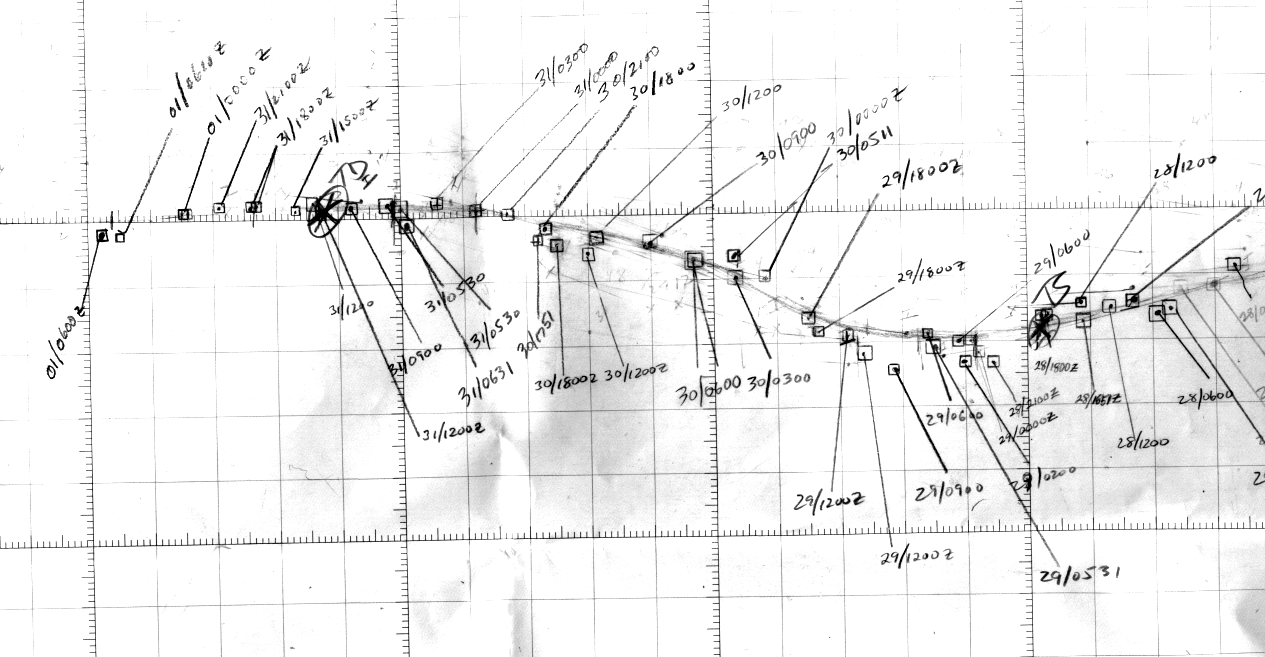 01/0600Z
01/0000Z
31/2100Z
31/1800Z
31/1500Z
TD
31/0300
31/0000
30/2100
30/1800
30/1200
30/0900
30/0000Z
30/0511
29/1800Z
29/1800Z
29/0600
28/1200
TS
01/0600Z
31/1200
31/0900
31/1200Z
31/0530
31/0530
31/0631
30/1751
30/1800Z
30/1200Z
30/0600
30/0300
29/1200Z
29/1200Z
29/0900
29/0600
29/0000Z
29/0200
29/0531
28/1800Z
28/1200
28/0600